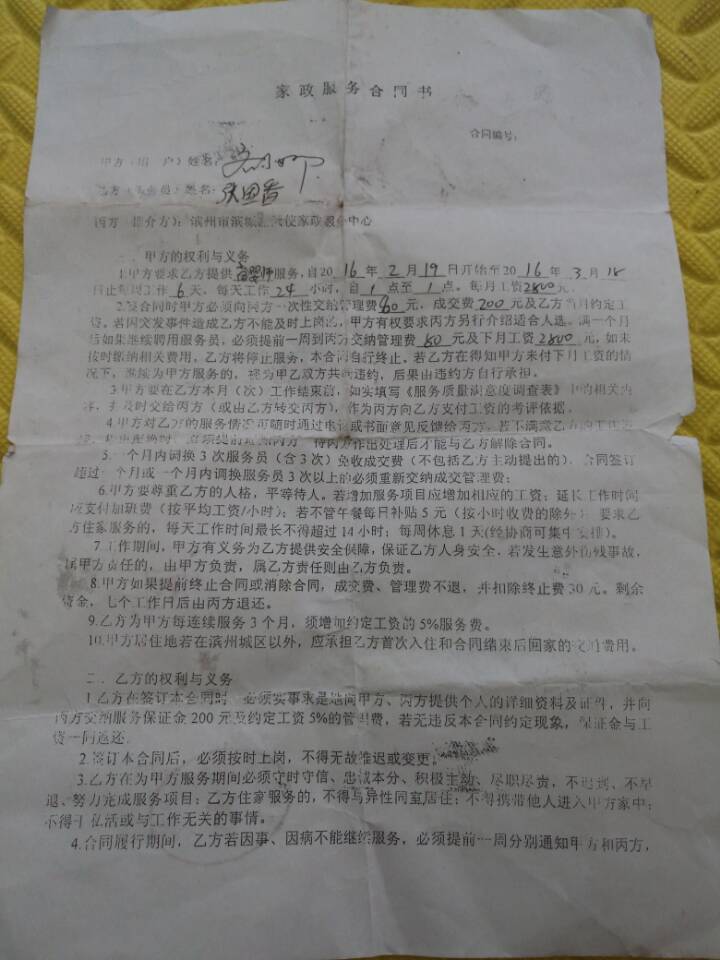 家政服务合同书
合同编号:
甲方(用 户)姓名:
乙方(服务员)姓名: 张
丙方(推介方):滨州市滨城 家政服务中心
一、甲方的权利与义务
1.甲方要求乙方提供育婴师服务,自2016年2月19日开始至2016年3月18
日止每周工作6天,每天工作24小时,自1点至1点。每月工资2800元.
2.签合同时甲方必须向丙方一次性交纳管理费80元,成交费200元及乙方当月约定工
资。若因突发事件造成乙方不能及时上岗的,甲方有权要求丙方另行介绍适合人选。满一个月
后如果继续聘用服务员,必须提前一周到丙方交纳管理费80元及下月工资2800元,如未
按时缴纳相关费用,乙方将停止服务,本合同自行终止。若乙方在得知甲方未付下月工资的情
况下,继续为甲方服务的,视为甲乙双方共同违约,后果由违约方自行承担。
3.甲方要在乙方本月(次)工作结束前,如实填写《服务质量满意度调查表》中的相关内
容,并及时交给丙方(或由乙方转交丙方),作为丙方向乙方支付工资的考评依据。
4.甲方对乙方的服务情况可随时通过电话或书面意见反馈给丙方。若不满意乙方的工作
必须提前通知丙方,待丙方作出处理后才能与乙方解除合同。
5.一个月内调换3次服务员(含3次)免收成交费(不包括乙方主动提出的)。合同签订
超过一个月或一个月内调换服务员3次以上的必须重新交纳成交管理费;
6.甲方要尊重乙方的人格,平等待人。若增加服务项目应增加相应的工资;延长工作时间
应支付加班费(按平均工资/小时);若不管午餐每日补贴5元(按小时收费的除外);要求乙
方住家服务的,每天工作时间最长不得超过14小时;每周休息1天(经协商可集中安排)。
7.工作期间,甲方有义务为乙方提供安全保障,保证乙方人身安全,若发生意外伤残事故,
属甲方责任的,由甲方负责,属乙方责任则由乙方负责。
8.甲方如果提前终止合同或消除合同,成交费、管理费不退,并扣除终止费30元。剩余
资金,七个工作日后由丙方退还。
9.乙方为甲方每连续服务3个月,须增加约定工资的5%服务费。
10.甲方居住地若在滨州城区以外,应承担乙方首次入住和合同结束后回家的交通费用。
二、乙方的权利与义务
1.乙方在签订本合同时,必须实事求是地向甲方、丙方提供个人的详细资料及证件,并向
丙方交纳服务保证金200元及约定工资5%的管理费,若无违反本合同约定现象,保证金与工
资一同返还。
2.签订本合同后,必须按时上岗,不得无故推迟或变更。
3.乙方在为甲方服务期间必须守时守信、忠诚本分、积极主动、尽职尽责,不迟到、不早
退、努力完成服务项目;乙方住家服务的,不得与异性同室居住;不得携带他人进入甲方家中;
不得干私活或与工作无关的事情。
4.合同履行期间,乙方若因事、因病不能继续服务,必须提前一周分别通知甲方和丙方,